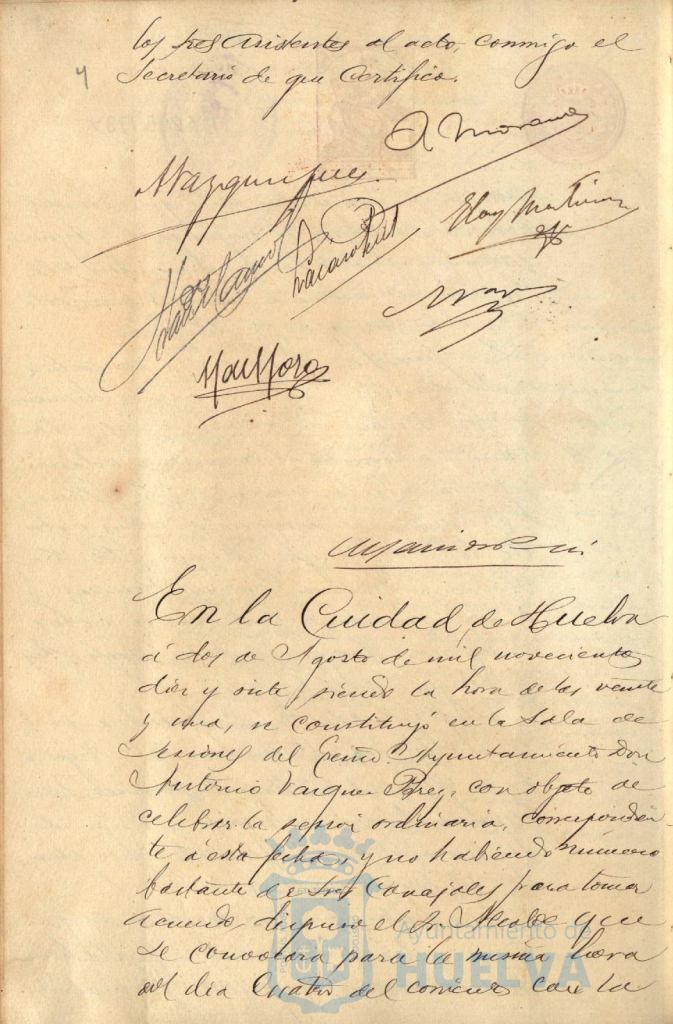 4
los Sres Asistentes al acto, conmigo el
Secretario de que Certifico.
A. Moreno
Eloy Martínez
En la Cuidad de Huelva
á dos de Agosto de mil novecientos
diez y siete siendo la hora de las veinte
y una, se constituyó en la Sala de
Sesiones del Excmo. Ayuntamiento Don
Antonio Vazquez Perez, con objeto de
celebrar la sesion ordinaria, correspondien-
te á esta fecha, y no habiendo número
bastante de Sres Concejales para tomar
acuerdo, dispuso el Sr Alcalde que
se convocara para la misma hora
del dia Cuatro del corriente con la
Ayuntamiento de
HUELVA